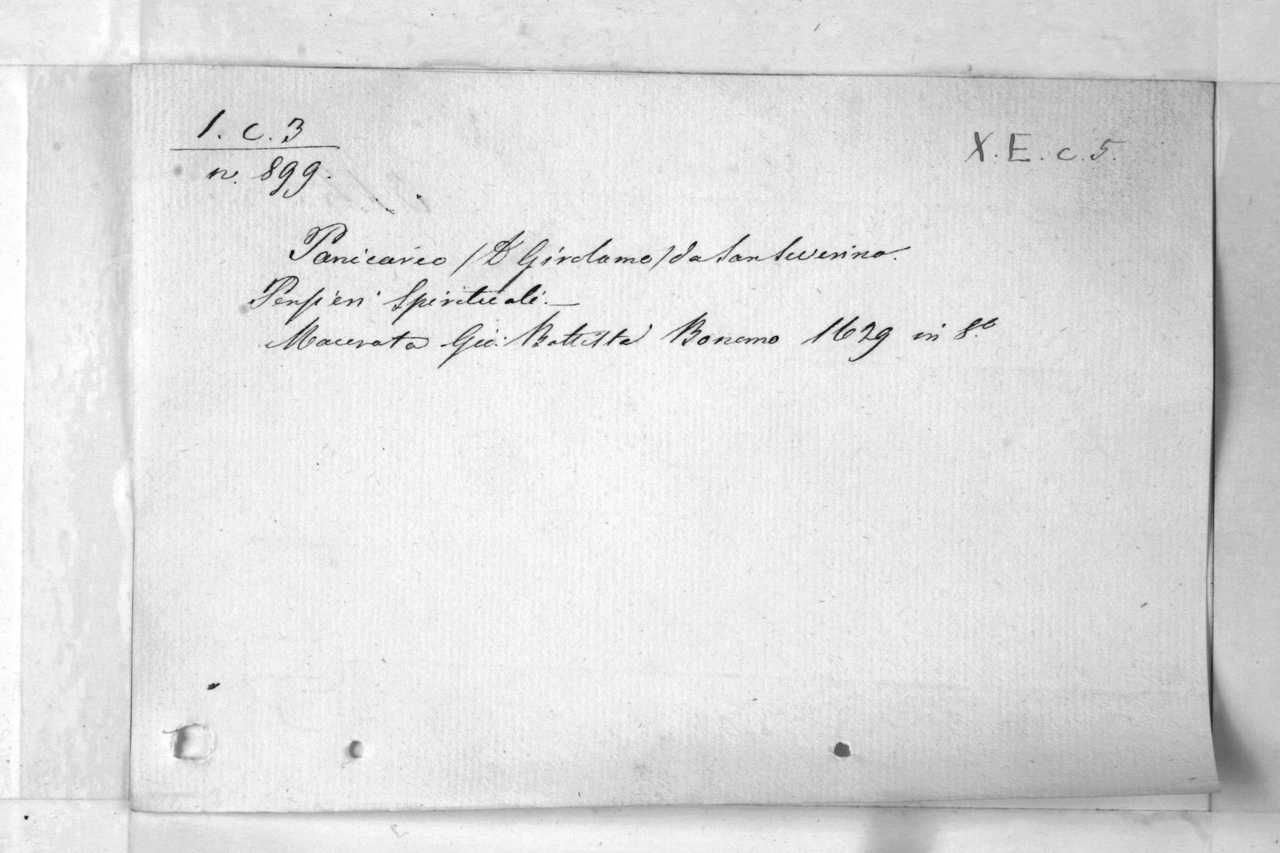 1. c. 3
n. 899.
X. E. c. 5.
Panicareo (D Girolamo) da San Severino.
Pensieri Spirituali.—
Macerata Gio: Battista Bonomo 1629 in 8.º